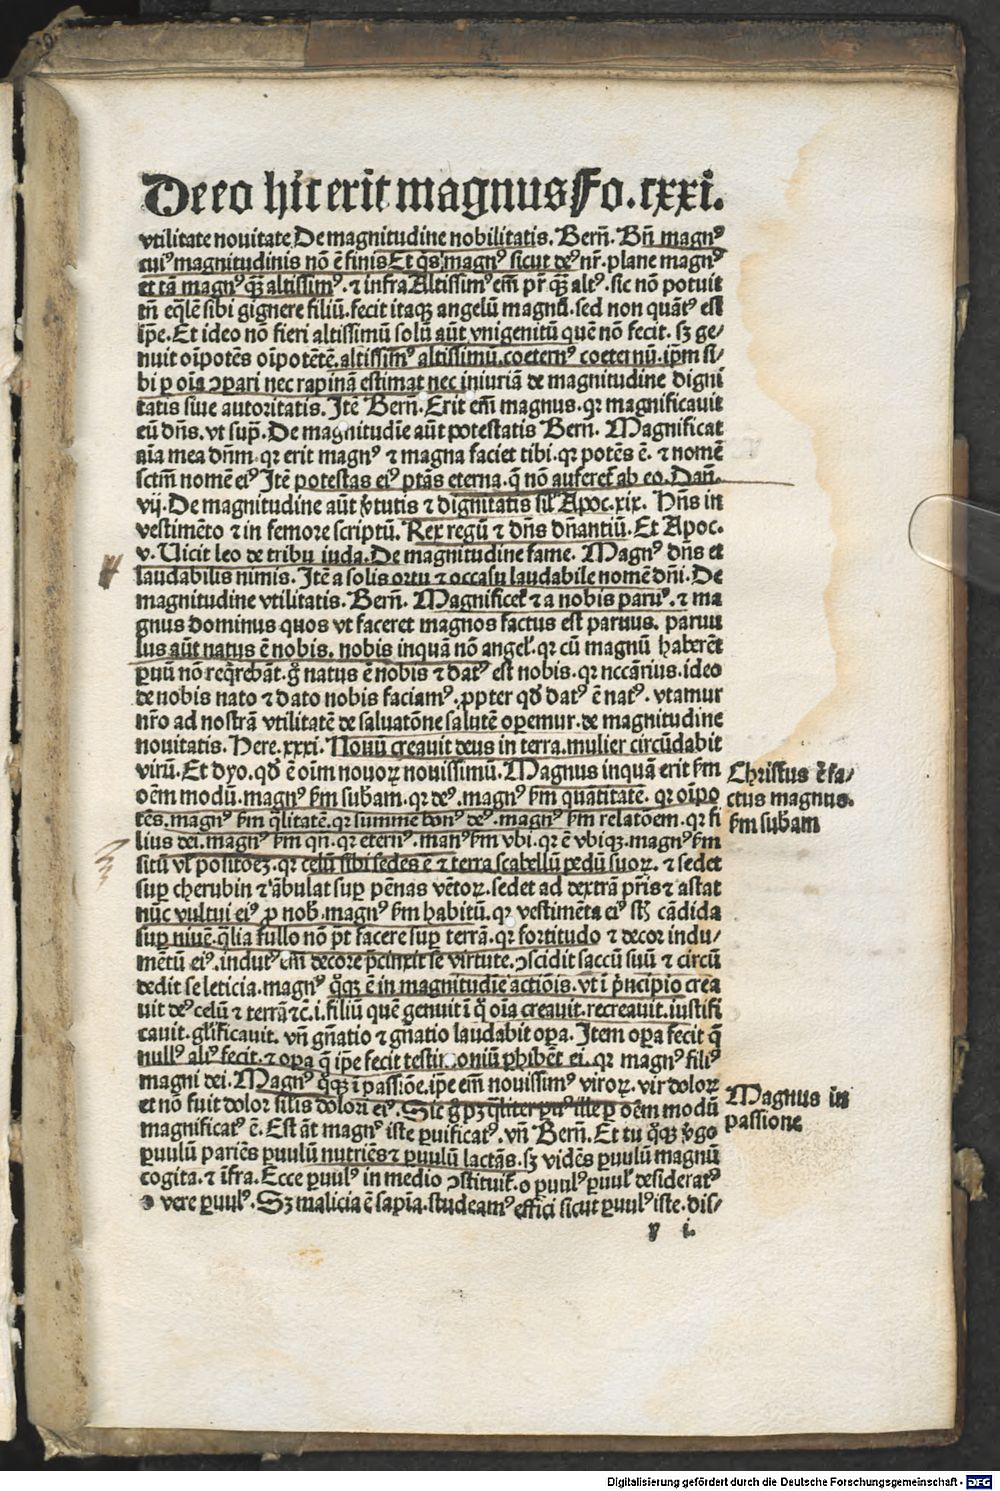 De eo hic erit magnus Fo. cxxi.
vtilitate nouitate De magnitudine nobilitatis. Berñ. Bñ magnꝰ
cuiꝰ magnitudinis nõ ẽ finis Et q̃s magnꝰ sicut deꝰ nr̃. plane magnꝰ
et tã magnꝰ q̃ꝫ altissimꝰ. ⁊ infra Altissimꝰ em̃ pr̃ q̃ꝫ altꝰ. sic nõ potuit
tñ eq̃lẽ sibi gignere filiũ. fecit itaqꝫ angelũ magnũ. sed non quãtꝰ est
ip̃e. Et ideo nõ fieri altissimũ solũ aũt vnigenitũ quẽ nõ fecit. sꝫ ge⸗
nuit oĩpotẽs oĩpotẽtẽ. altissimꝰ altissimũ. coeternꝰ coeternũ. ip̃m si⸗
bi ꝑ oĩa ꝯpari nec rapinã estimat nec iniuriã de magnitudine digni
tatis siue autoritatis. Itẽ Berñ. Erit em̃ magnus. qꝛ magnificauit
eũ dñs. vt sup̃. De magnitudĩe aũt potestatis Berñ. Magnificat
aĩa mea dñm. qꝛ erit magnꝰ ⁊ magna faciet tibi. qꝛ potẽs ẽ. ⁊ nomẽ
sctm̃ nomẽ eiꝰ Itẽ potestas eiꝰ ptãs eterna. q̃ nõ auferet̃ ab eo. Dañ.
vij. De magnitudine aũt v̓tutis ⁊ dignitatis sil̓ Apoc. xix. Hñs in
vestimẽto ⁊ in femore scriptũ. Rex regũ ⁊ dñs dñantiũ. Et Apoc.
v. Uicit leo de tribu iuda. De magnitudine fame. Magnꝰ dñs et
laudabilis nimis. Itẽ a solis ortu ⁊ occasu laudabile nomẽ dñi. De
magnitudine vtilitatis. Berñ. Magnificet̃ ⁊ a nobis paruꝰ. ⁊ ma
gnus dominus quos vt faceret magnos factus est paruus. paruu
lus aũt natus ẽ nobis. nobis inquã nõ angel̓. qꝛ cũ magnũ haberẽt
ꝑuũ nõ req̃rebãt. g̊ natus ẽ nobis ⁊ datꝰ est nobis. qꝛ nccãrius. ideo
de nobis nato ⁊ dato nobis faciamꝰ. ꝓpter qđ datꝰ ẽ natꝰ. vtamur
nr̃o ad nostrã vtilitatẽ de saluatõne salutẽ operemur. de magnitudine
nouitatis. Here. xxxi. Nouũ creauit deus in terra. mulier circũdabit
virũ. Et dyo. qđ ẽ oĩm nouoꝝ nouissimũ. Magnus inquã erit ẜm
oẽm modũ. magnꝰ ẜm sub̃am. qꝛ deꝰ. magnꝰ ẜm quãtitatẽ. qꝛ oĩpo
tẽs. magnꝰ ẜm q̃litatẽ. qꝛ summe bonꝰ deꝰ. magnꝰ ẜm relatõem. qꝛ fi
lius dei. magnꝰ ẜm qñ. qꝛ eternꝰ. manꝰ ẜm vbi. qꝛ ẽ vbiqꝫ. magnꝰ ẜm
sitũ vl̓ positoẽꝫ. qꝛ celũ sibi sedes ẽ ⁊ terra scabellũ pedũ suoꝝ. ⁊ sedet
suꝑ cherubin ⁊ ãbulat suꝑ pẽnas vẽtoꝝ. sedet ad dextrã pr̃is ⁊ astat
nũc vultui eiꝰ ꝓ nob̓. magnꝰ ẜm habitũ. qꝛ vestimẽta eiꝰ st̃ cãdida
suꝑ niuẽ. q̃lia fullo nõ p̃t facere suꝑ terrã. qꝛ fortitudo ⁊ decor indu⸗
mẽtũ eiꝰ. indutꝰ em̃ decore p̃cinxit se virtute. ꝯscidit saccũ suũ ⁊ circũ
dedit se leticia. magnꝰ q̊qꝫ ẽ in magnitudĩe actiõis. vt ĩ p̓ncipio crea
uit deꝰ celũ ⁊ terrã ⁊c̃. i. filiũ quẽ genuit ĩ q̊ oĩa creauit. recreauit. iustifi
cauit. gl̓ificauit. vñ gñatio ⁊ gñatio laudabit oꝑa. Item oꝑa fecit q̃
nullꝰ aliꝰ fecit. ⁊ oꝑa q̃ ip̃e fecit testimoniũ ꝑhibẽt ei. qꝛ magnꝰ filiꝰ
magni dei. Magnꝰ q̊qꝫ ĩ passiõe. ip̃e em̃ nouissimꝰ viroꝝ. vir doloꝝ
et nõ fuit dolor sil̃is dolori eiꝰ. Sic g̊ pꝫ q̃liter ille ꝑ oẽm modũ
magnificatꝰ ẽ. Est aũt magnꝰ iste ꝑuificatꝰ. vñ Berñ. Et tu q̊qꝫ v̓go
ꝑuulũ pariẽs ꝑuulũ nutriẽs ⁊ ꝑuulũ lactãs. sꝫ vidẽs ꝑuulũ magnũ
cogita. ⁊ ĩfra. Ecce ꝑuulꝰ in medio ꝯstituit̃. o ꝑuulꝰ ꝑuul̓ desideratꝰ
o vere ꝑuulꝰ. Sꝫ malicia ẽ sapĩa. studeamꝰ effici sicut ꝑuulꝰ iste. dis⸗
y i.
Christus ẽ fa⸗
ctus magnus.
ẜm sub̃am
Magnus in
passione
Digitalisierung gefördert durch die Deutsche Forschungsgemeinschaft - DFG